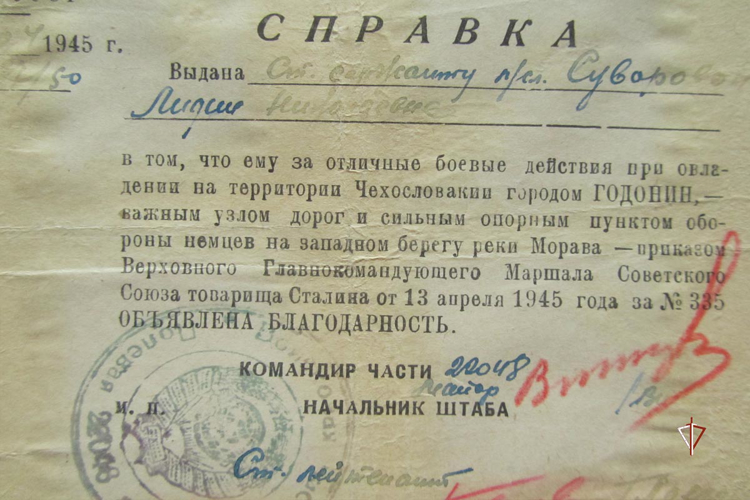 1945 г.
СПРАВКА
/50
Выдана Ст. сержанту м/сл. Суворовой
Лидии Николаевне
в том, что ему за отличные боевые действия при овла-
дении на территории Чехословакии городом ГОДОНИН,—
важным узлом дорог и сильным опорным пунктом обо-
роны немцев на западном берегу реки Морава —приказом
Верховного Главнокомандующего Маршала Советского
Союза товарища Сталина от 13 апреля 1945 года за № 335
ОБЪЯВЛЕНА БЛАГОДАРНОСТЬ.
КОМАНДИР ЧАСТИ 22048
майор
и. п. НАЧАЛЬНИК ШТАБА
Ст. лейтенант
Полевая
22048